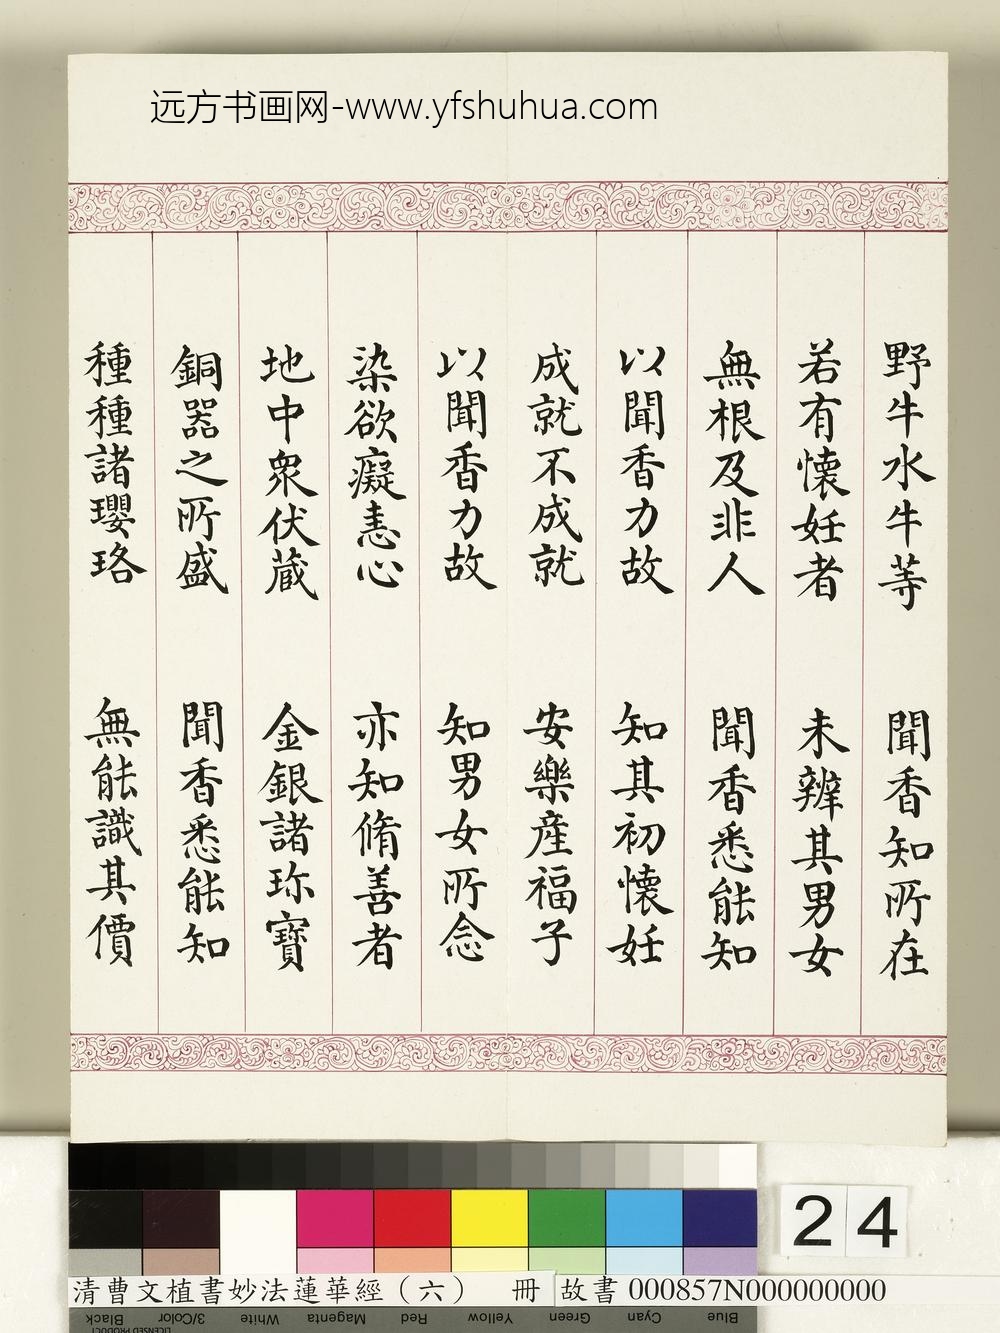 远方书画网-www.yfshuhua.com
野牛水牛等 聞香知所在
若有懐妊者 未辨其男女
無根及非人 聞香悉能知
以聞香力故 知其初懐妊
成就不成就 安樂産福子
以聞香力故 知男女所念
染欲癡恚心 亦知脩善者
地中衆伏蔵 金銀諸珎寳
銅器之所盛 聞香悉能知
種種諸瓔珞 無能識其價
24
清曹文植書妙法蓮華經（六） 冊 故書 000857N000000000
Black 3/Color White Magenta Red Yellow Green Cyan Blue
LICENSED PRODUCT